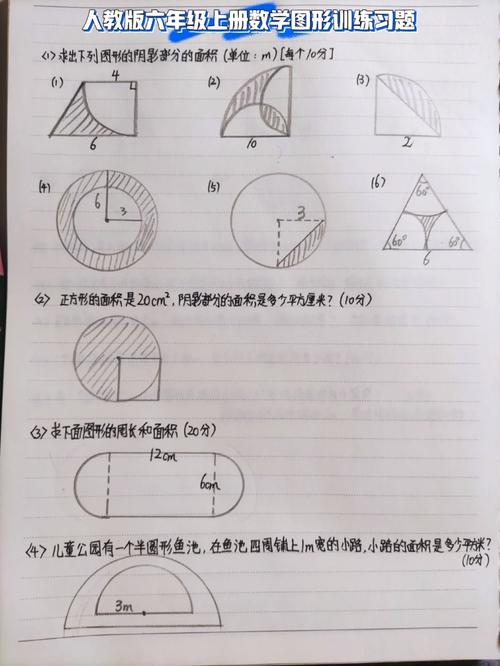 人教版六年级上册数学图形训练习题
〈1〉求出下列图形的阴影部分的面积(单位:m)[每个10分]
(1) 4 6
(2) 10
(3) 2
(4) 6 3
(5) 3
(6) 60° 60° 60° 6
〈2〉正方形的面积是20cm²,阴影部分的面积是多少平方厘米?(10分)
〈3〉求下面图形的周长和面积(20分)
12cm
6cm
〈4〉儿童公园有一个半圆形鱼池,在鱼池四周铺上1m宽的小路,小路的面积是多少平方米?
(10分)
3m